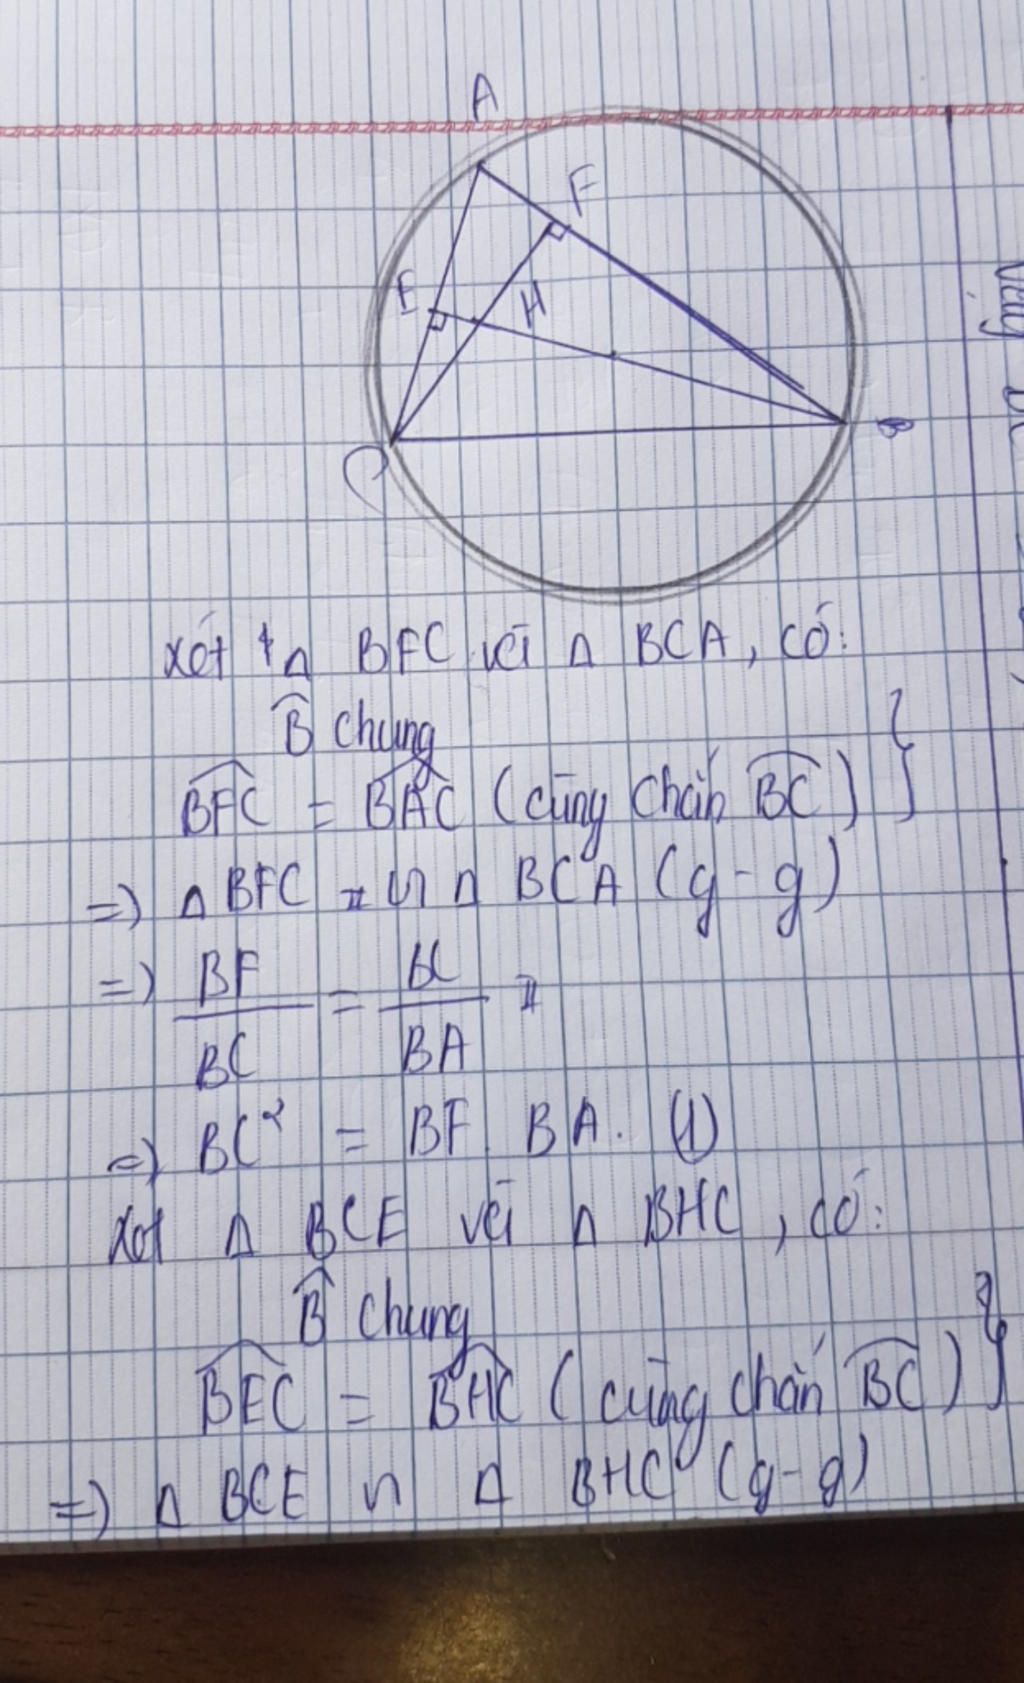 A
F
E
H
C
B
Xét Δ BFC với Δ BCA, có:
B̂ chung
BFC = BAC (cùng chắn BC)
=) Δ BFC ᔕ Δ BCA (g-g)
=) BF/BC = BC/BA
=) BC² = BF. BA. (1)
Xét Δ BCE với Δ BHC, có:
B̂ chung
BEC = BHC (cùng chắn BC)
=) Δ BCE ᔕ Δ BHC (g-g)